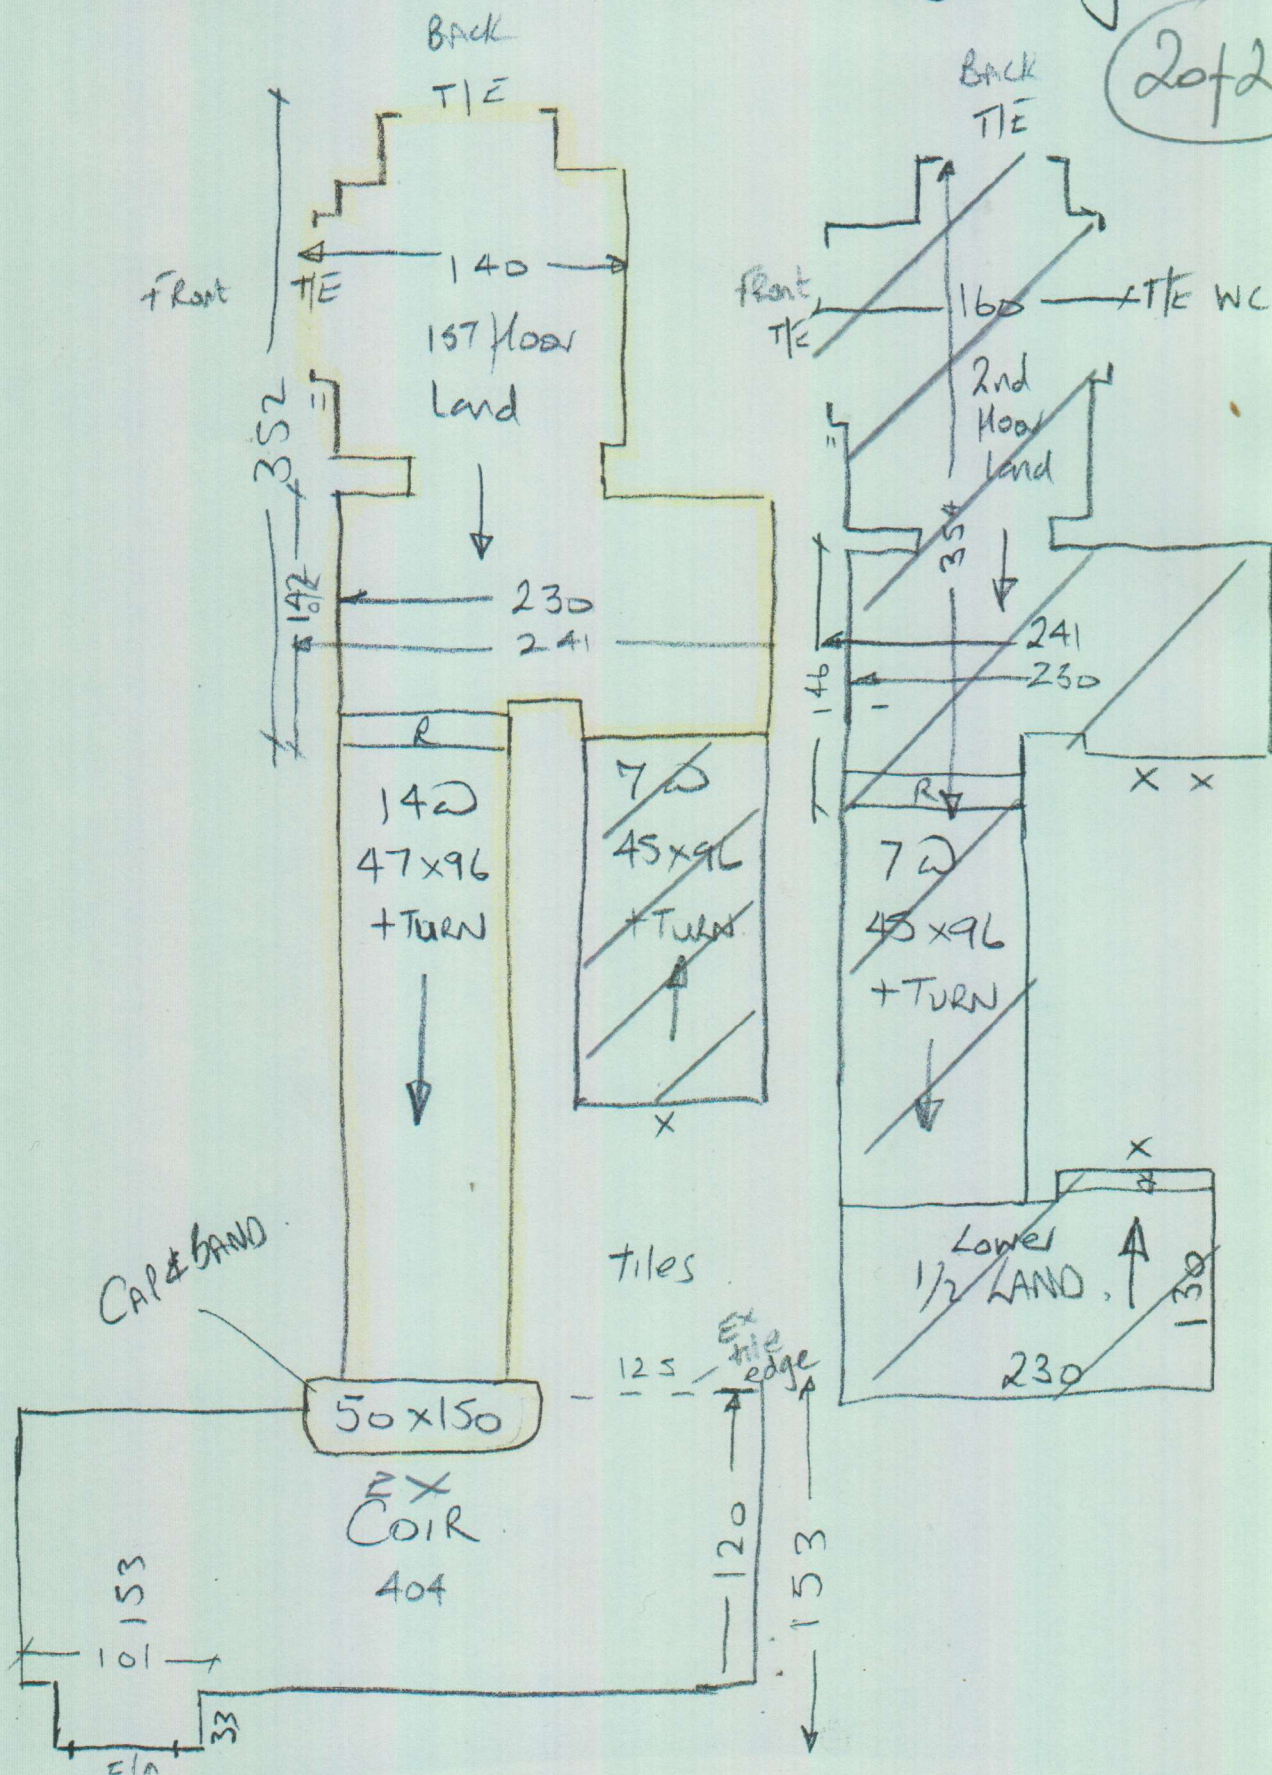 2of2
BACK
T/E
FRont
T/E
140
1ST floor
Land
352
142
230
241
R
14
47x96
+TURN
7
45x96
+TURN
X
CAP & BAND
50x150
EX
COIR
404
tiles
125
Ex
tile
edge
120
153
153
101
33
BACK
T/E
FRont
T/E
160
T/E WC
2nd
floor
land
354
241
230
146
R
X X
7
45x96
+TURN
X
Lower
1/2 LAND
130
230